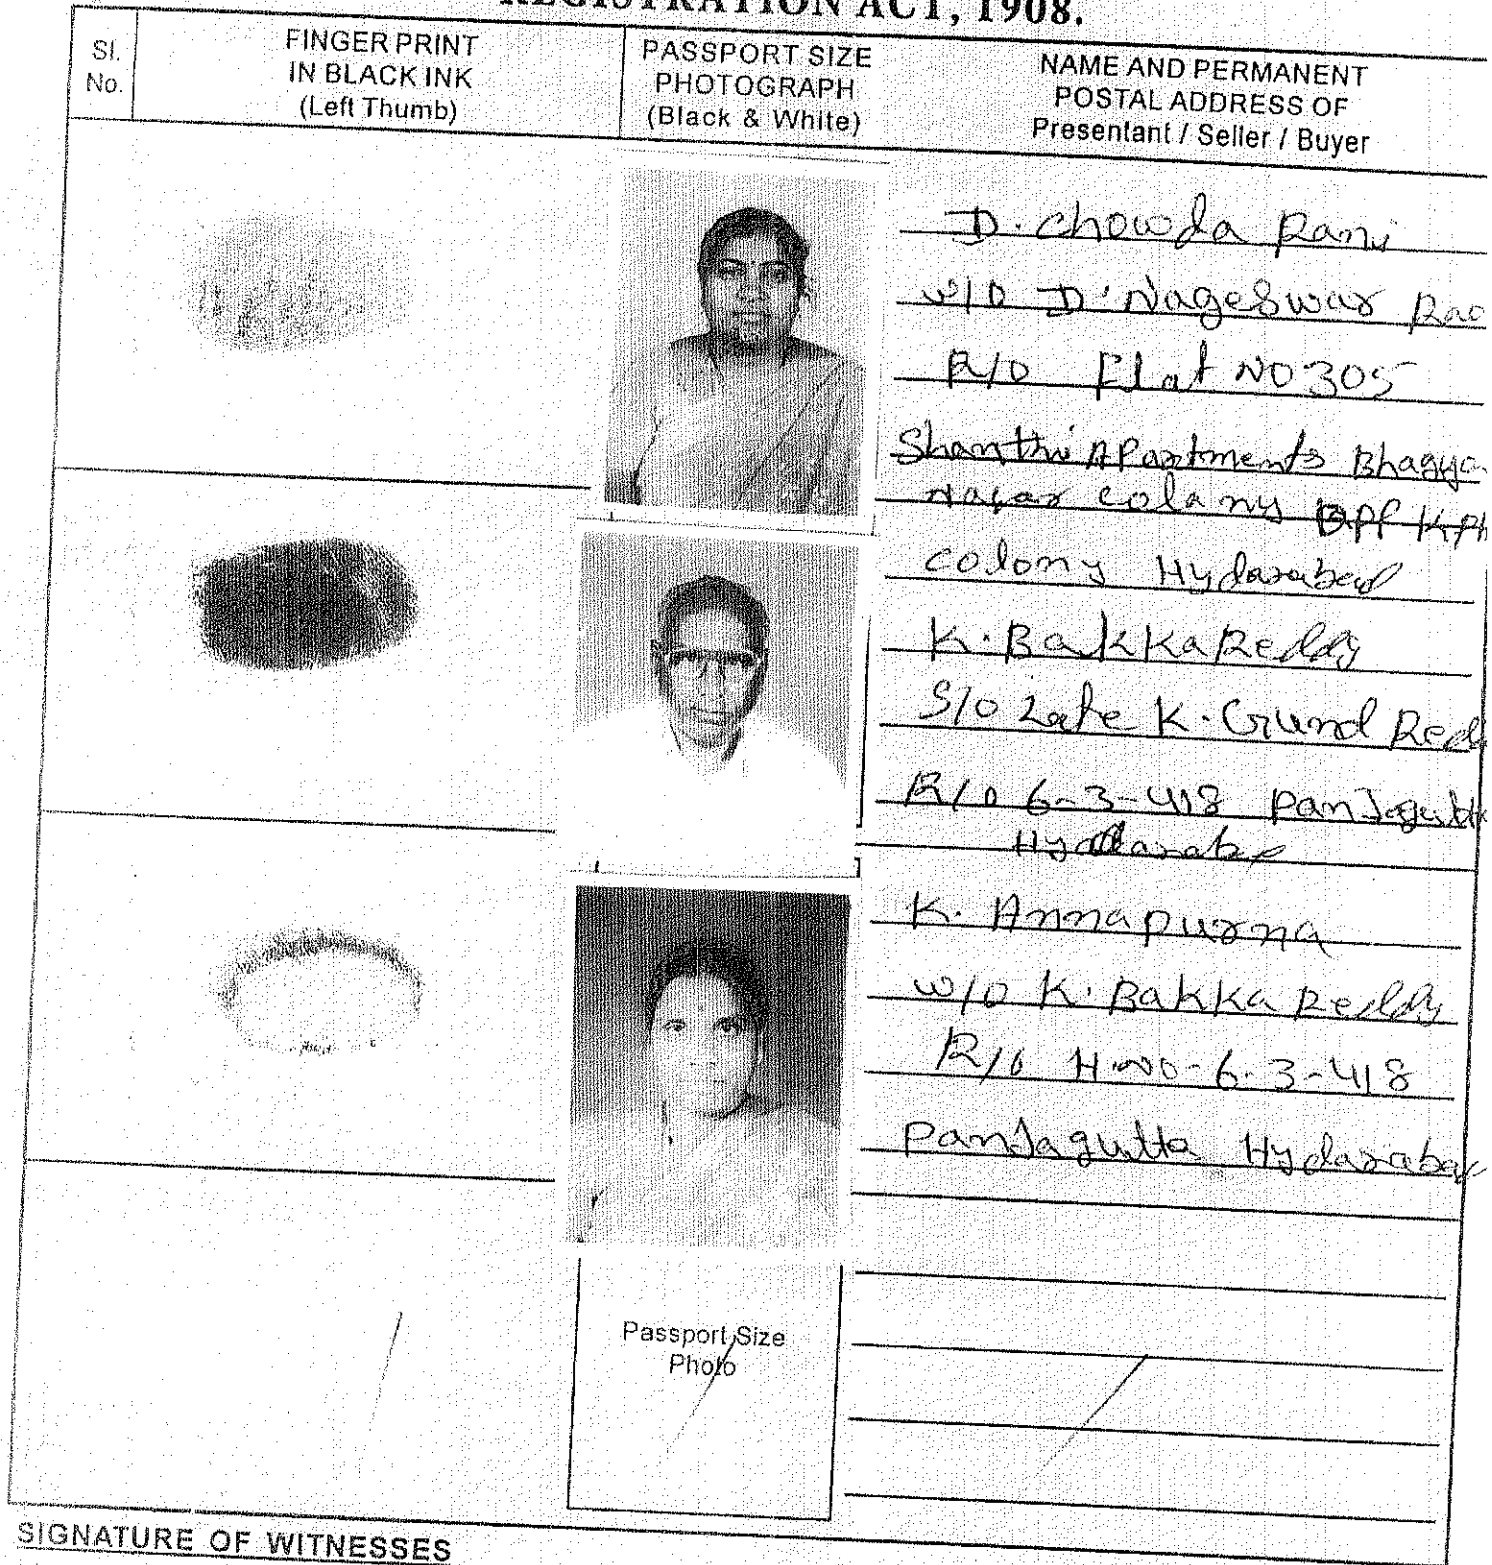 REGISTRATION ACT, 1908.
Sl.
No.
FINGER PRINT
IN BLACK INK
(Left Thumb)
PASSPORT SIZE
PHOTOGRAPH
(Black & White)
NAME AND PERMANENT
POSTAL ADDRESS OF
Presentant / Seller / Buyer
D. Chowda Rani
W/O D. Nageswar Rao
R/O Flat NO 305
Shanthi Apartments Bhagya
Nagar colany opp KPH
colony Hydarabad
K. Bakka Reddy
S/O Late K. Gund Red
R/O 6-3-418 Panjagutta
K. Annapurna
W/O K. Bakka Reddy
R/O H.NO-6-3-418
Panjagutta Hydarabad
Passport Size
Photo
SIGNATURE OF WITNESSES